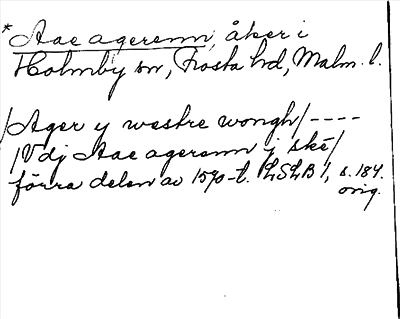 *Aae agerenn, åker i
Holmby sn, Frosta hd, Malm. l.
/Ager y westre wongh/ ----
/Vdj Aae agerenn j ské/
förra delen av 1570-t. LSLB 1, s. 184.
orig.